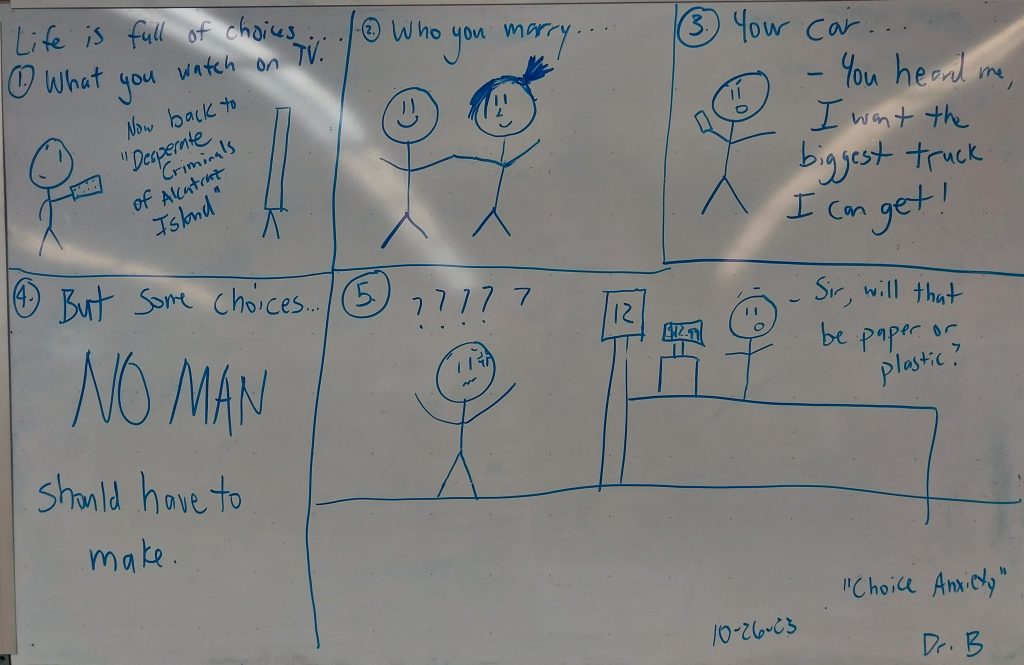 Life is full of choices....
1. What you watch on TV.
Now back to
"Desperate
Criminals
of Alcatrat
Island"
2. Who you marry....
3. Your car...
- You heard me,
I want the
biggest truck
I can get!
4. But some choices...
NO MAN
should have to
make.
5.
? ? ? ? ?
12
$12.99
- Sir, will that
be paper or
plastic?
"Choice Anxiety"
10-26-23
Dr. B